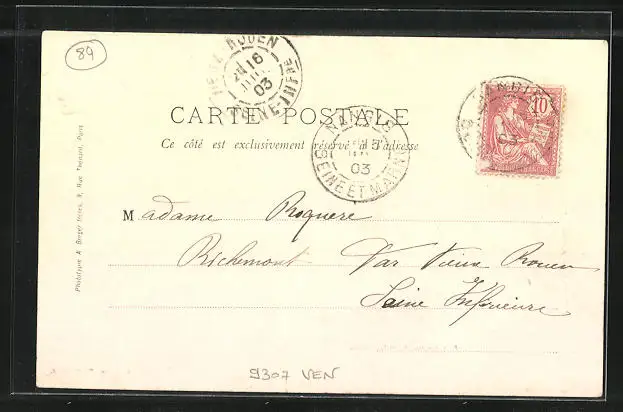 89
ROUEN
16
03
SEINE-INFRE
CARTE POSTALE
Ce côté est exclusivement réservé à l'adresse
NANGIS
03
SEINE ET MARNE
10
Madame Roquere
Richemont Par Vieux Rouen
Seine Inférieure
Phototypie A. Berger frères, 9, Rue Thénard, Paris
9307 VEN